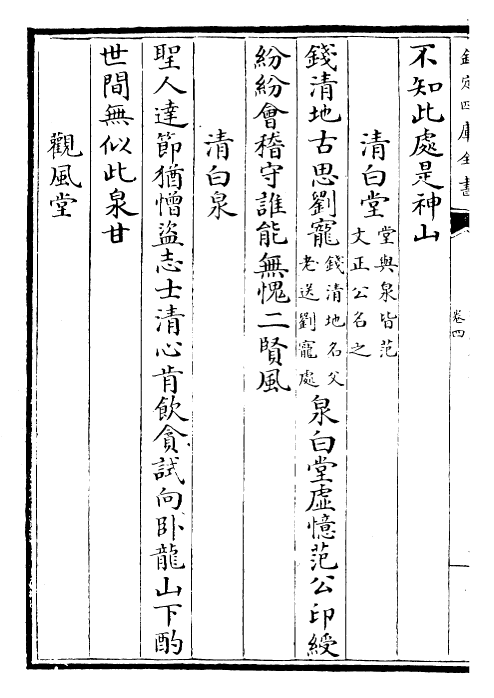 欽定四庫全書
卷四
不知此處是神山
清白堂堂與泉皆范文正公名之
錢清地古思劉寵錢清地名父老送劉寵處泉白堂虛憶范公印綬
紛紛會稽守誰能無愧二賢風
清白泉
聖人達節猶憎盜志士清心肯飲貪試向卧龍山下酌
世間無似此泉甘
觀風堂